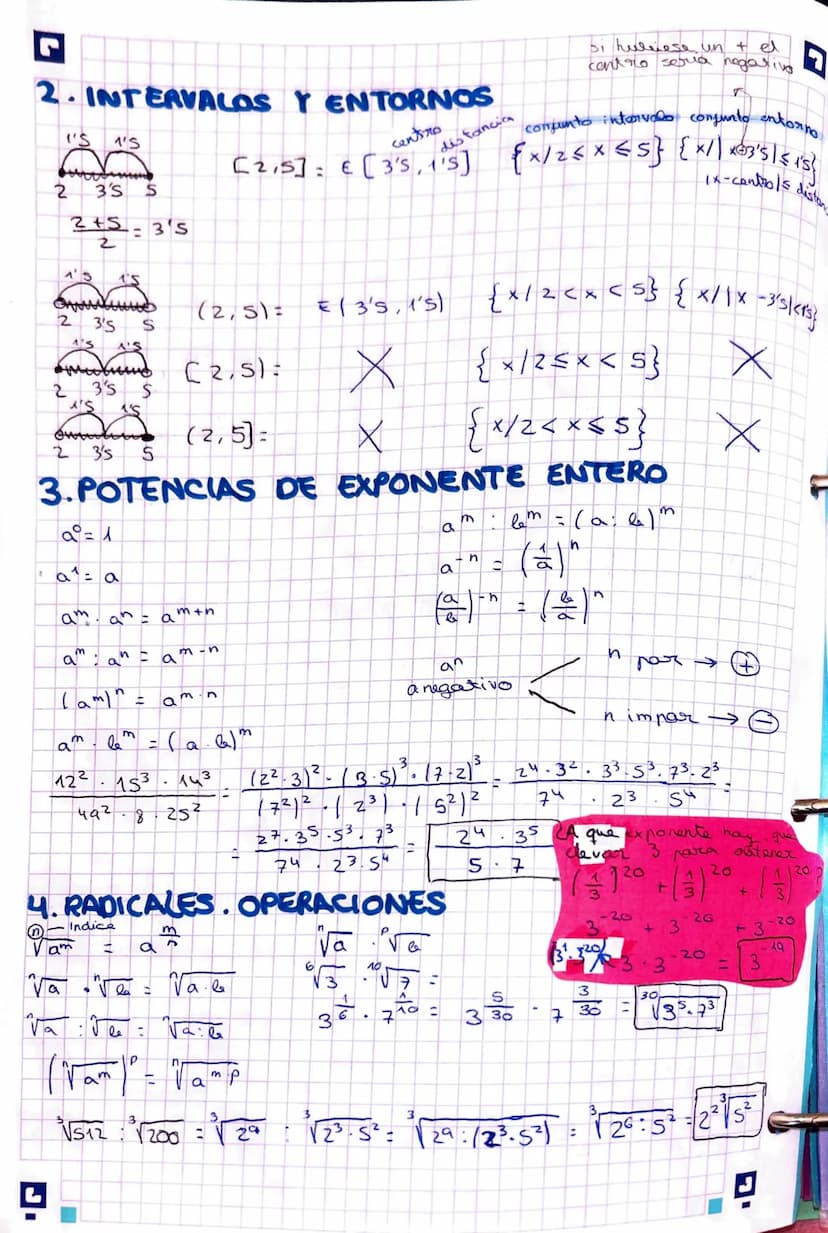 si hubiese un + el
centro sería negativo
2. INTERVALOS Y ENTORNOS
1'5 1'5
2 3'5 5
centro distancia
[2,5] = E [3'5, 1'5]
conjunto intervalo
{x/2 ≤ x ≤ 5}
conjunto entorno
{x/|x-3'5| ≤ 1'5}
|x-centro| ≤ distan
2+5/2 = 3'5
1'5 1'5
2 3'5 5
(2,5) = E (3'5, 1'5) {x/2 < x < 5} {x/|x-3'5|<1'5}
1'5 1'5
2 3'5 5
[2,5) = X {x/2 ≤ x < 5} X
1'5 1'5
2 3'5 5
(2,5] = X {x/2 < x ≤ 5} X
3. POTENCIAS DE EXPONENTE ENTERO
a⁰ = 1
a¹ = a
aᵐ · aⁿ = aᵐ⁺ⁿ
aᵐ : aⁿ = aᵐ⁻ⁿ
(aᵐ)ⁿ = aᵐ·ⁿ
aᵐ · bᵐ = (a · b)ᵐ
aᵐ : bᵐ = (a : b)ᵐ
a⁻ⁿ = (1/a)ⁿ
(a/b)⁻ⁿ = (b/a)ⁿ
aⁿ
a negativo
n par → +
n impar → −
12² · 15³ · 14³ / 49² · 8 · 25² = (2²·3)² · (3·5)³ · (7·2)³ / (7²)² · (2³) · (5²)² = 2⁴ · 3² · 3³ · 5³ · 7³ · 2³ / 7⁴ · 2³ · 5⁴ =
= 2⁷ · 3⁵ · 5³ · 7³ / 7⁴ · 2³ · 5⁴ = 2⁴ · 3⁵ / 5 · 7
¿A que exponente hay que
elevar 3 para obtener
(1/3)²⁰ + (1/3)²⁰ + (1/3)²⁰ ?
3⁻²⁰ + 3⁻²⁰ + 3⁻²⁰
(3¹ · 3⁻²⁰) 3 · 3⁻²⁰ = 3⁻¹⁹
4. RADICALES. OPERACIONES
n — Indice
ⁿ√aᵐ = a^(m/n)
ⁿ√a · ⁿ√b = ⁿ√a·b
ⁿ√a : ⁿ√b = ⁿ√a:b
(ⁿ√aᵐ)ᵖ = ⁿ√aᵐ·ᵖ
ⁿ√a · ᵖ√b
⁶√3 · ¹⁰√7 =
3^(1/6) · 7^(1/10) = 3^(5/30) · 7^(3/30) = ³⁰√3⁵·7³
³√512 : ³√200 = ³√2⁹ : ³√2³·5² = ³√2⁹:(2³·5²) = ³√2⁶:5² = 2² ³√5²